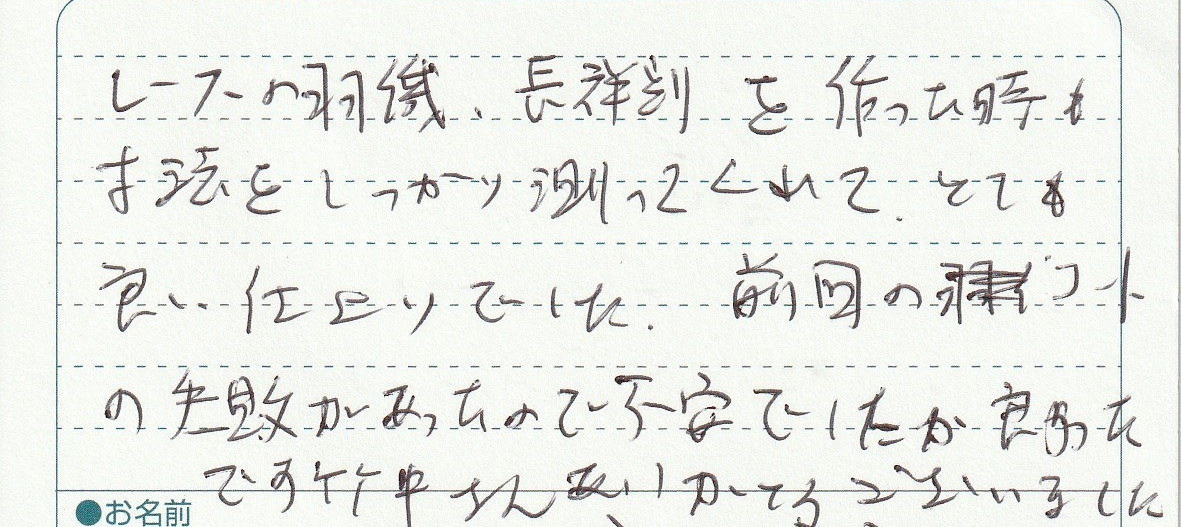 レースの羽織、長襦袢を作った時も
寸法をしっかり測ってくれて、とても
良い仕上りでした。前回のコート
の失敗があったので不安でしたが良かった
です竹中さんありがとうございました
●お名前